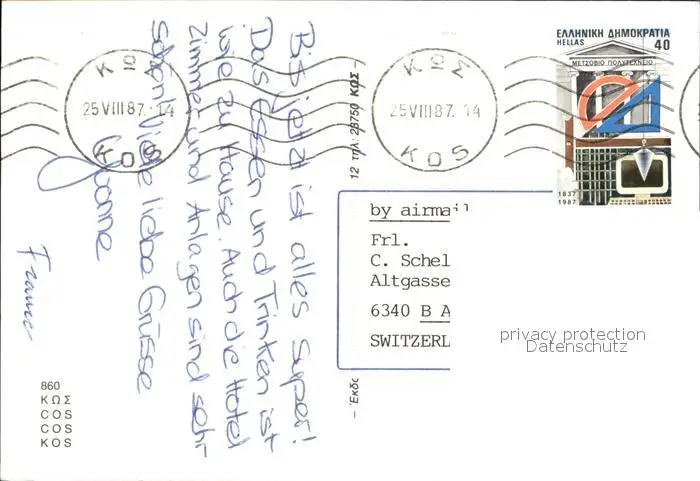 Bis jetzt ist alles super!
Das Essen und Trinken ist
wie zu Hause. Auch die Hotel
Zimmer und Anlagen sind sehr
schön. Viele liebe Grüsse
Yvonne
860
ΚΩΣ
COS
COS
KOS
ΚΩΣ
25 VIII 87. 14
KOS
ΚΩΣ
25 VIII 87. 14
KOS
12 τηλ: 28750 ΚΩΣ –
– Έκδο
ΕΛΛΗΝΙΚΗ ΔΗΜΟΚΡΑΤΙΑ
HELLAS 40
ΜΕΤΣΟΒΙΟ ΠΟΛΥΤΕΧΝΕΙΟ
1837
1987
by airmail
Frl.
C. Schel
Altgasse
6340 B A
SWITZERL
privacy protection
Datenschutz